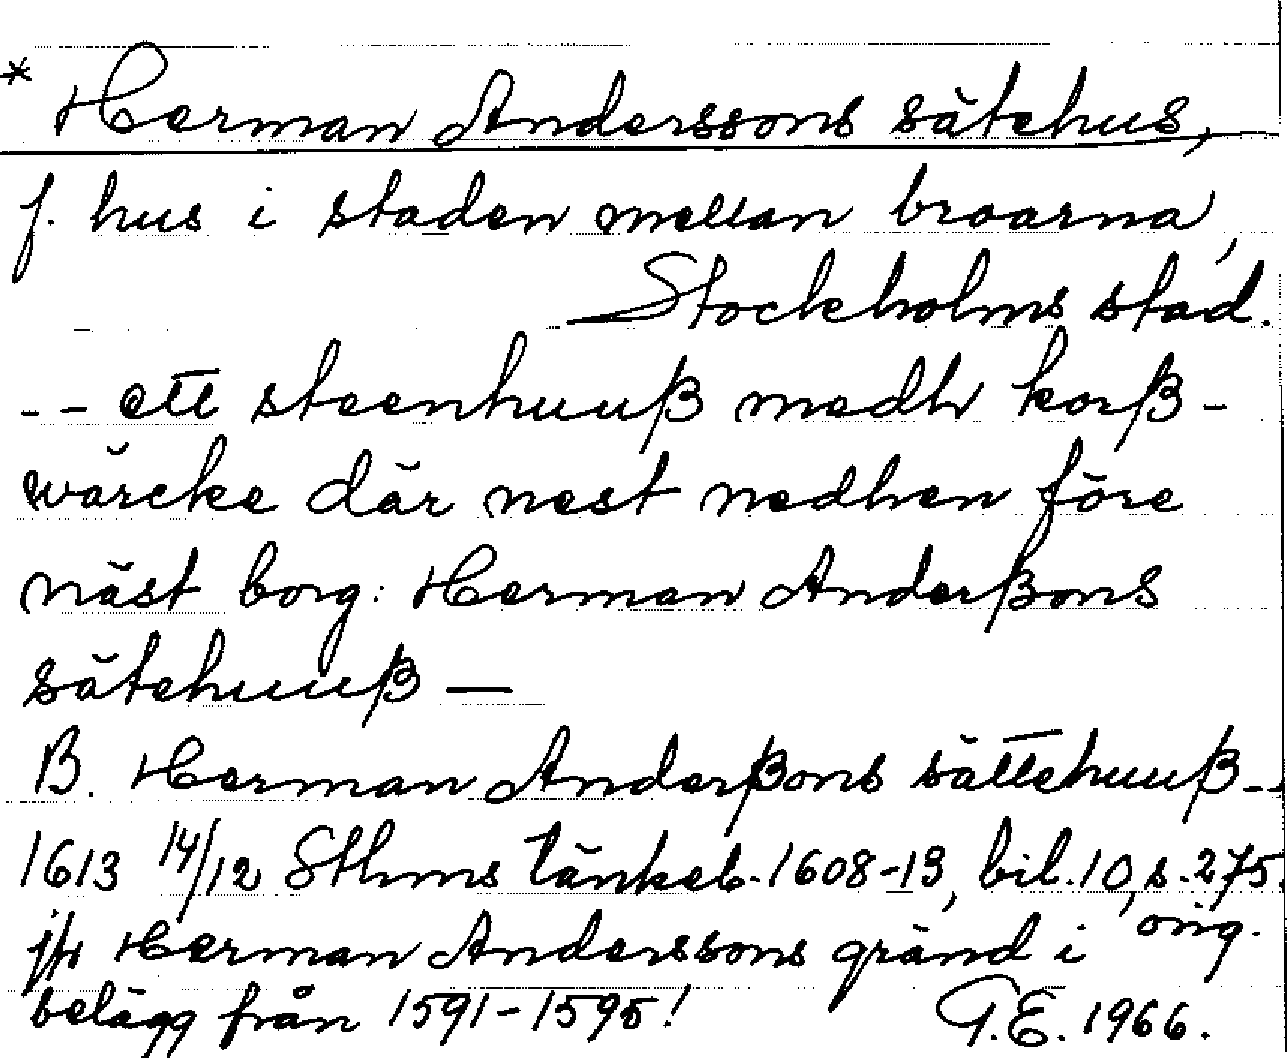 * Herman Anderssons sätehus,
f. hus i staden mellan broarna,
Stockholms stad.
-- ett steenhuuß medh korß-
wärcke där nest nedhen före
näst borg: Herman Anderßons
sätehuuß —
B. Herman Anderßons sättehuuß--
1613 14/12 Sthms tänkeb. 1608-13, bil. 10, s. 275.
orig.
jfr Herman Anderssons gränd i
belägg från 1591-1595! G.E. 1966.